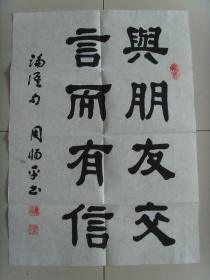 與朋友交
言而有信
論語句 周炳平書